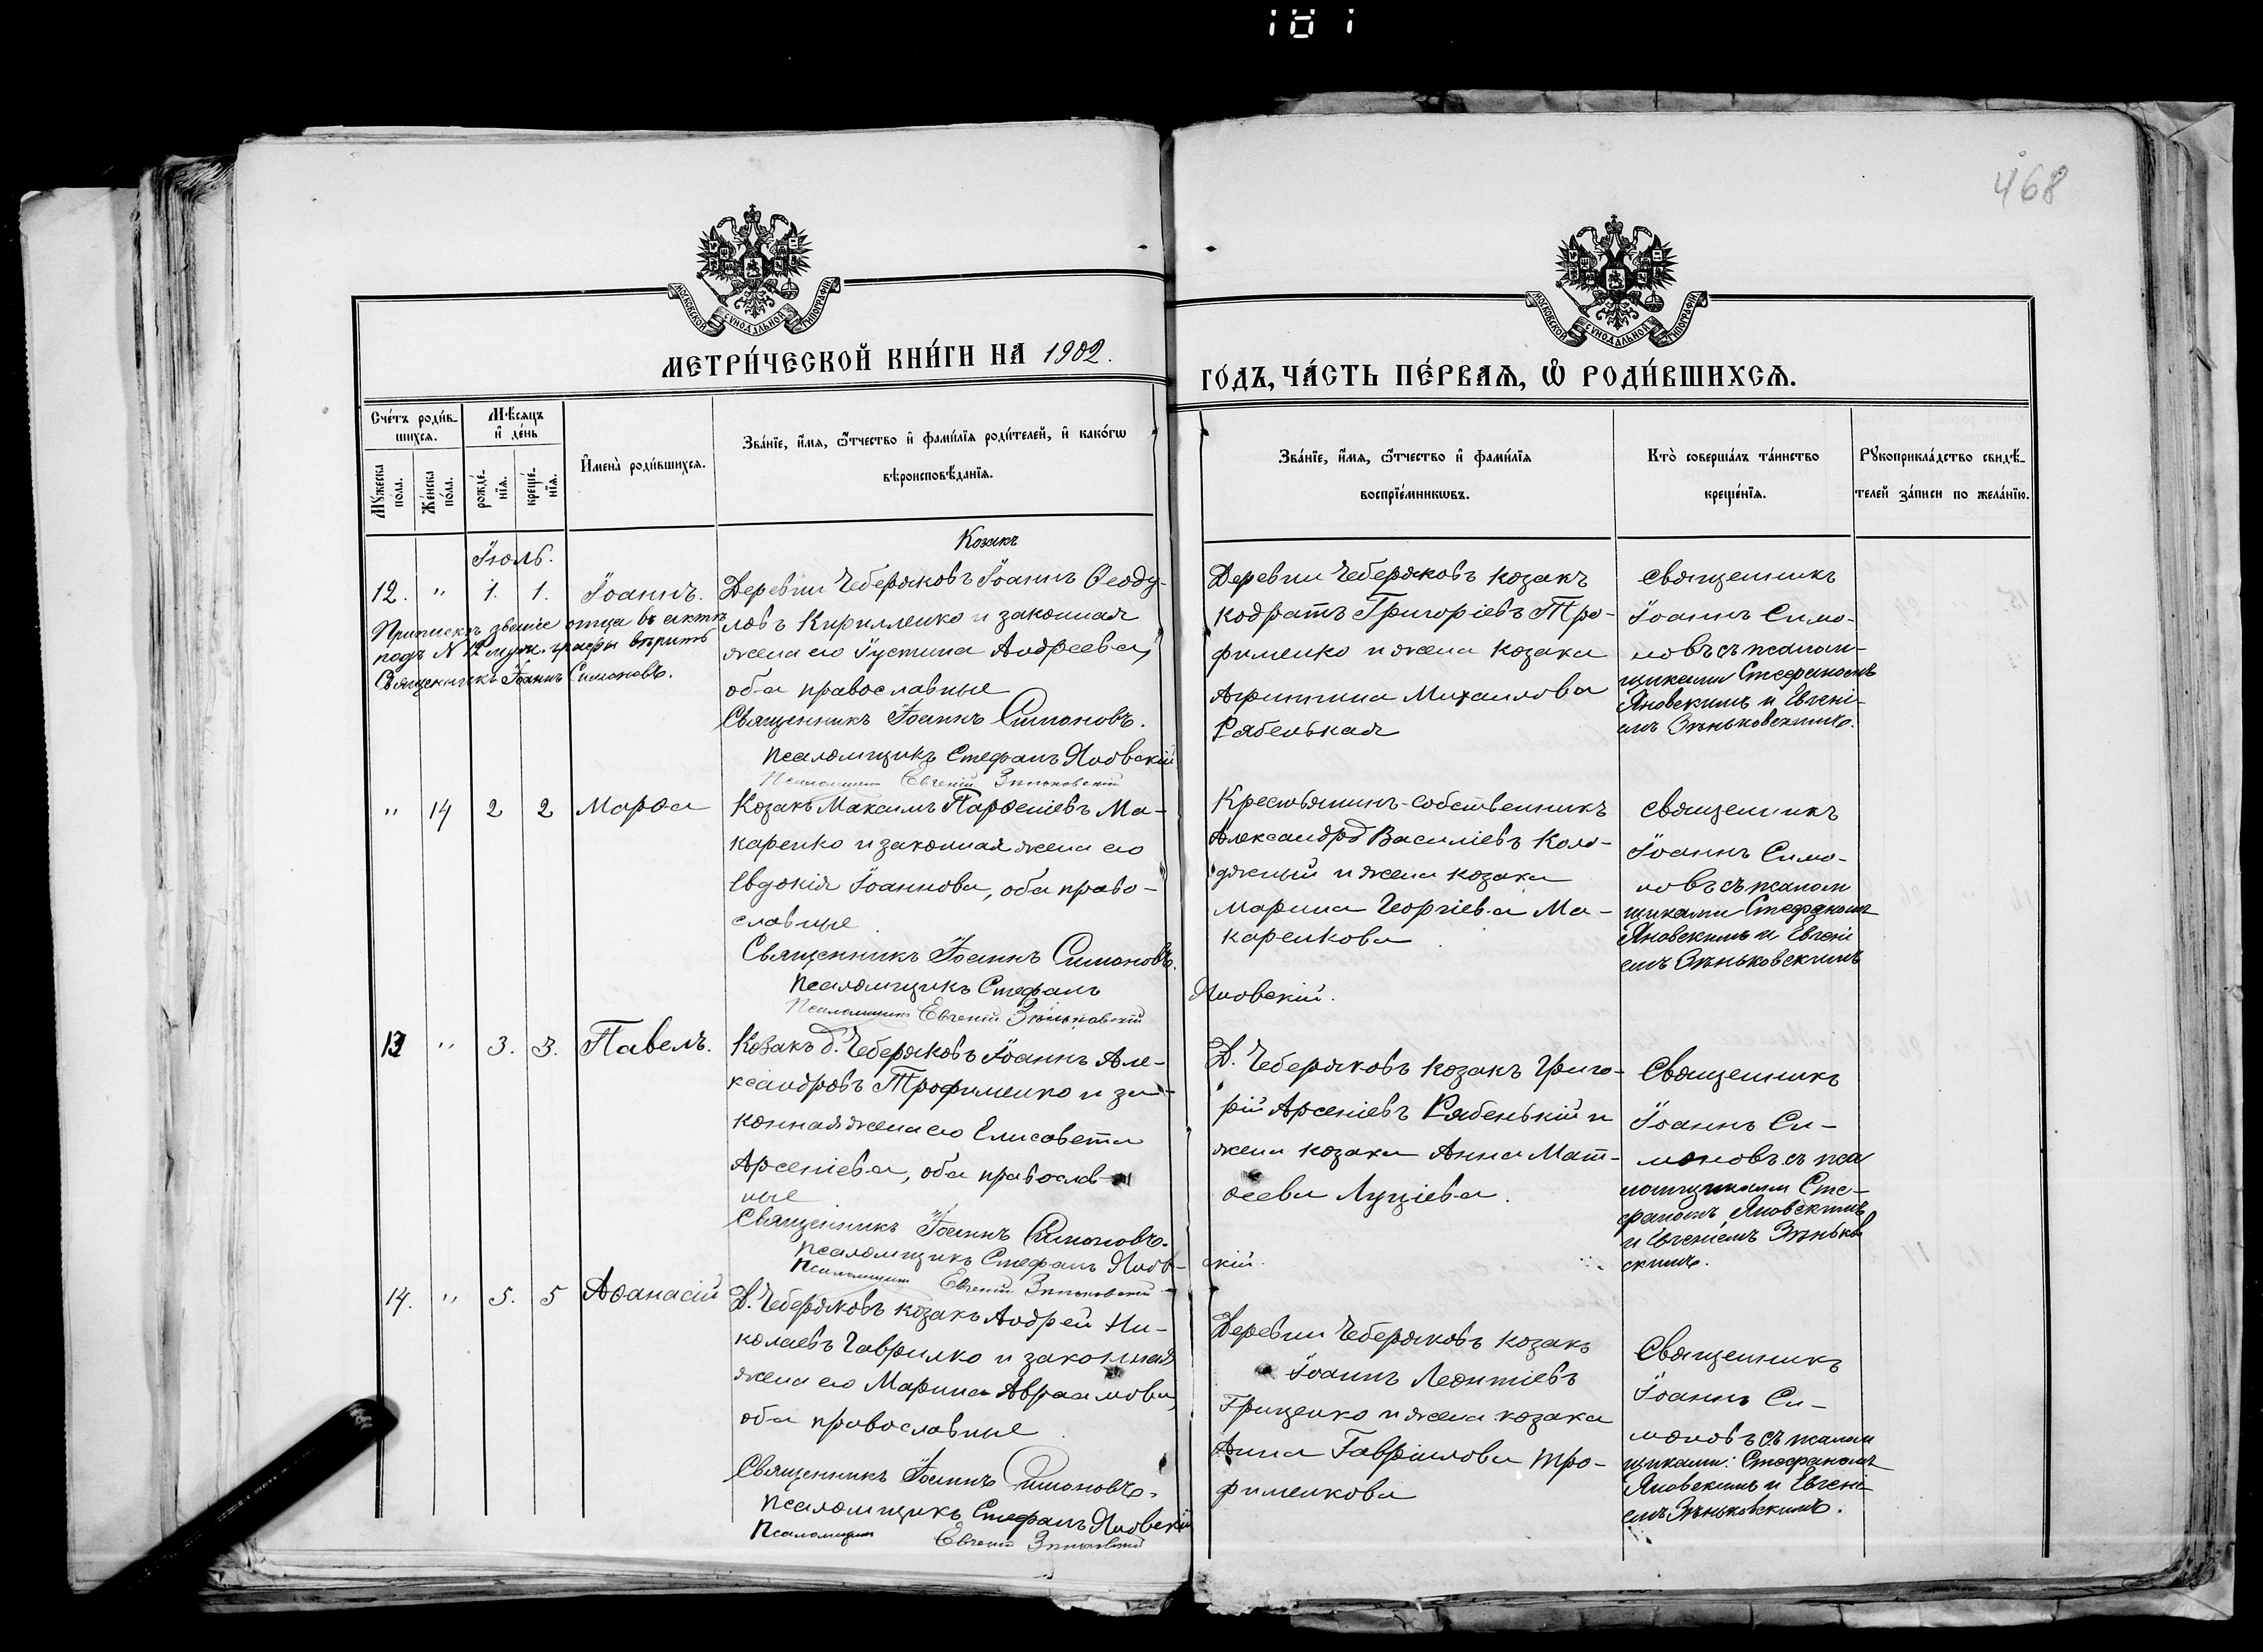 468
МОСКОВСКОЙ СѴНОДАЛЬНОЙ ТИПОГРАФІИ
МОСКОВСКОЙ СѴНОДАЛЬНОЙ ТИПОГРАФІИ
МЕТРИ́ЧЕСКОЙ КНИ́ГИ НА 1902.
ГО́ДЪ, ЧА́СТЬ ПЕ́РВАѦ, Ѡ҆ РОДИ́ВШИХСѦ.
Сче́тъ роди́в-
шихся.
Мѣ́сяцъ
и҆ де́нь
Мꙋ́жеска
по́ла.
Же́нска
по́ла.
рожде́-
нїя.
креще́-
нїя.
И҆мена̀ роди́вшихся.
Зва́нїе, и҆́мя, ѻ҆́тчество и҆ фами́лїя роди́телей, и҆ како́гѡ
вѣроисповѣ́данїя.
Зва́нїе, и҆́мя, ѻ҆́тчество и҆ фами́лїя
воспрїе́мникѡвъ.
Кто̀ соверша́лъ та́инство
креще́нїя.
Рꙋкоприкла́дство свидѣ́-
телей за́писи по жела́нїю.
Іюль.
Козакъ
12. " 1. 1. Іоаннъ.
Деревни Чеберяковъ Іоаннъ Ѳеоду-
ловъ Кирилленко и законная
жена его Іустина Андреева,
оба православные
Священникъ Іоаннъ Симоновъ.
Псаломщикъ Стефанъ Яновскій
Псаломщикъ Евгеній Зѣньковскій
званіе отца въ актѣ
подъ № 12 муж. графы вѣрить
Священникъ Іоаннъ Симоновъ.
Деревни Чеберяковъ козакъ
Кодратъ Григоріевъ Тро-
фименко и жена козака
Агриппина Михаилова
Рябенькая
Священникъ
Іоаннъ Симо-
новъ съ псалом-
щиками Стефаномъ
Яновскимъ и Евгені-
емъ Зѣньковскимъ.
" 14 2 2 Марѳа
Козакъ Максимъ Парѳеніевъ Ма-
каренко и законная жена его
Евдокія Іоаннова, оба право-
славные
Священникъ Іоаннъ Симоновъ.
Псаломщикъ Стефанъ
Яновскій.
Псаломщикъ Евгеній Зѣньковскій
Крестьянинъ-собственникъ
Александръ Василіевъ Коло-
дяжный и жена козака
Марина Георгіева Ма-
каренкова
Священникъ
Іоаннъ Симо-
новъ съ псалом
щиками Стефаномъ
Яновскимъ и Евгені
емъ Зѣньковскимъ
13 " 3. 3. Павелъ.
Козакъ д. Чеберяковъ Іоаннъ Але-
ксандровъ Трофименко и за-
конная жена его Елисавета
Арсеніева, оба православ-
ные
Священникъ Іоаннъ Симоновъ.
Псаломщикъ Стефанъ Янов-
скій.
Псаломщикъ Евгеній Зѣньковскій
Д. Чеберяковъ козакъ Григо-
рій Арсеніевъ Рябенькій и
жена козака Анна Мат-
ѳеева Луціева.
Священникъ
Іоаннъ Си-
моновъ съ пса
ломщиками Сте-
фаномъ Яновскимъ
и Евгеніемъ Зѣньков
скимъ.
14. " 5. 5 Аѳанасій
Д. Чеберяковъ козакъ Андрей Ни-
колаевъ Гаврилко и законная
жена его Марина Авраамова,
оба православные
Священникъ Іоаннъ Симоновъ.
Псаломщикъ Стефанъ Яновскій
Псаломщикъ Евгеній Зѣньковскій
Деревни Чеберяковъ козакъ
Іоаннъ Леонтіевъ
Гриценко и жена козака
Анна Гавріилова Тро-
фименкова
Священникъ
Іоаннъ Си-
моновъ съ псалом
щиками: Стефаномъ
Яновскимъ и Евгені-
емъ Зѣньковскимъ.